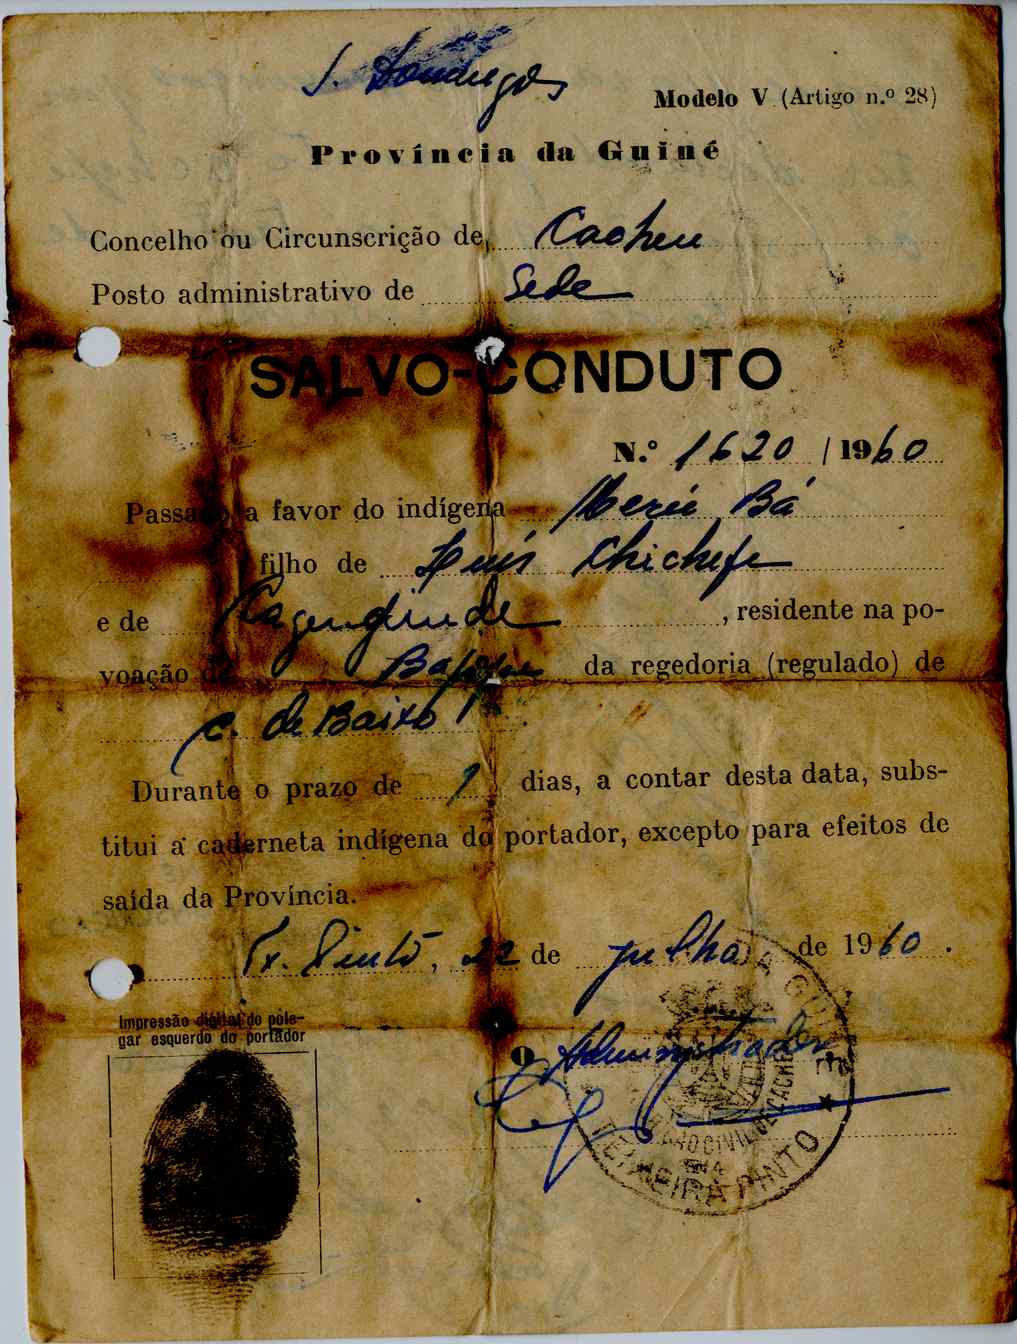 S. Domingos
Modelo V (Artigo n.º 28)
Província da Guiné
Concelho ou Circunscrição de Cacheu
Posto administrativo de Sede
SALVO-CONDUTO
N.º 1620 / 1960
Passado a favor do indígena Bá
filho de Luís Chichefe
e de , residente na po-
voação de da regedoria (regulado) de
C. de Baixo
Durante o prazo de dias, a contar desta data, subs-
titui a caderneta indígena do portador, excepto para efeitos de
saída da Província.
Tx. Pinto, 22 de julho de 1960.
Impressão digital do pole-
gar esquerdo do portador
O Administrador
TEIXEIRA PINTO